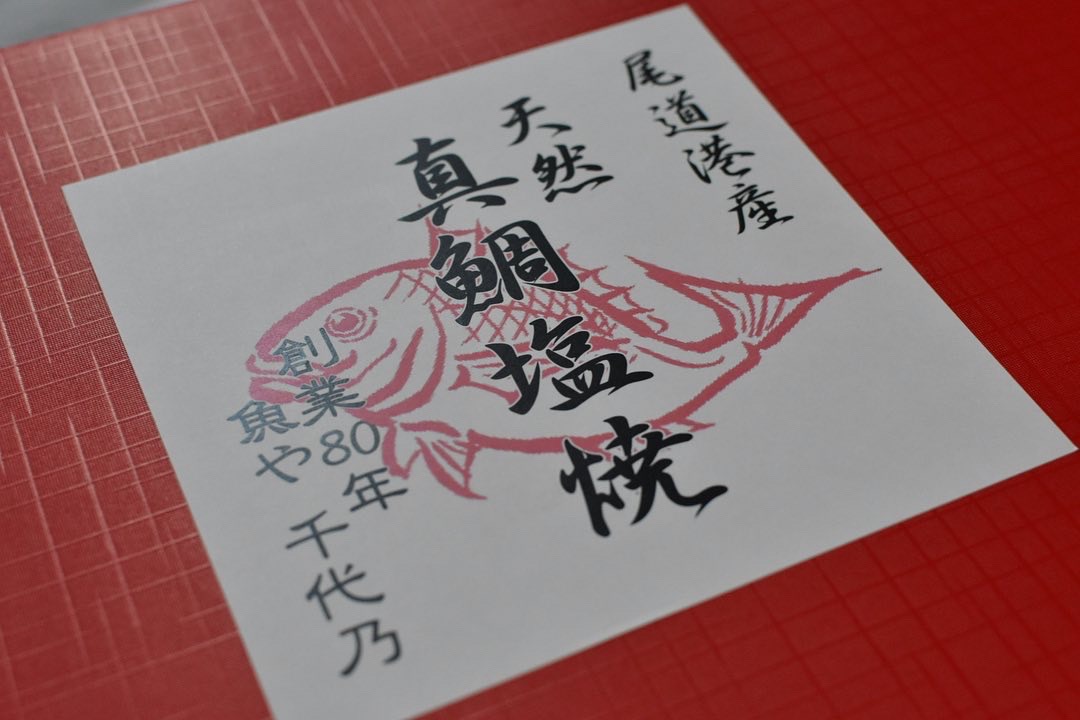 尾道港産
天然
真鯛塩焼
創業80年
魚や 千代乃